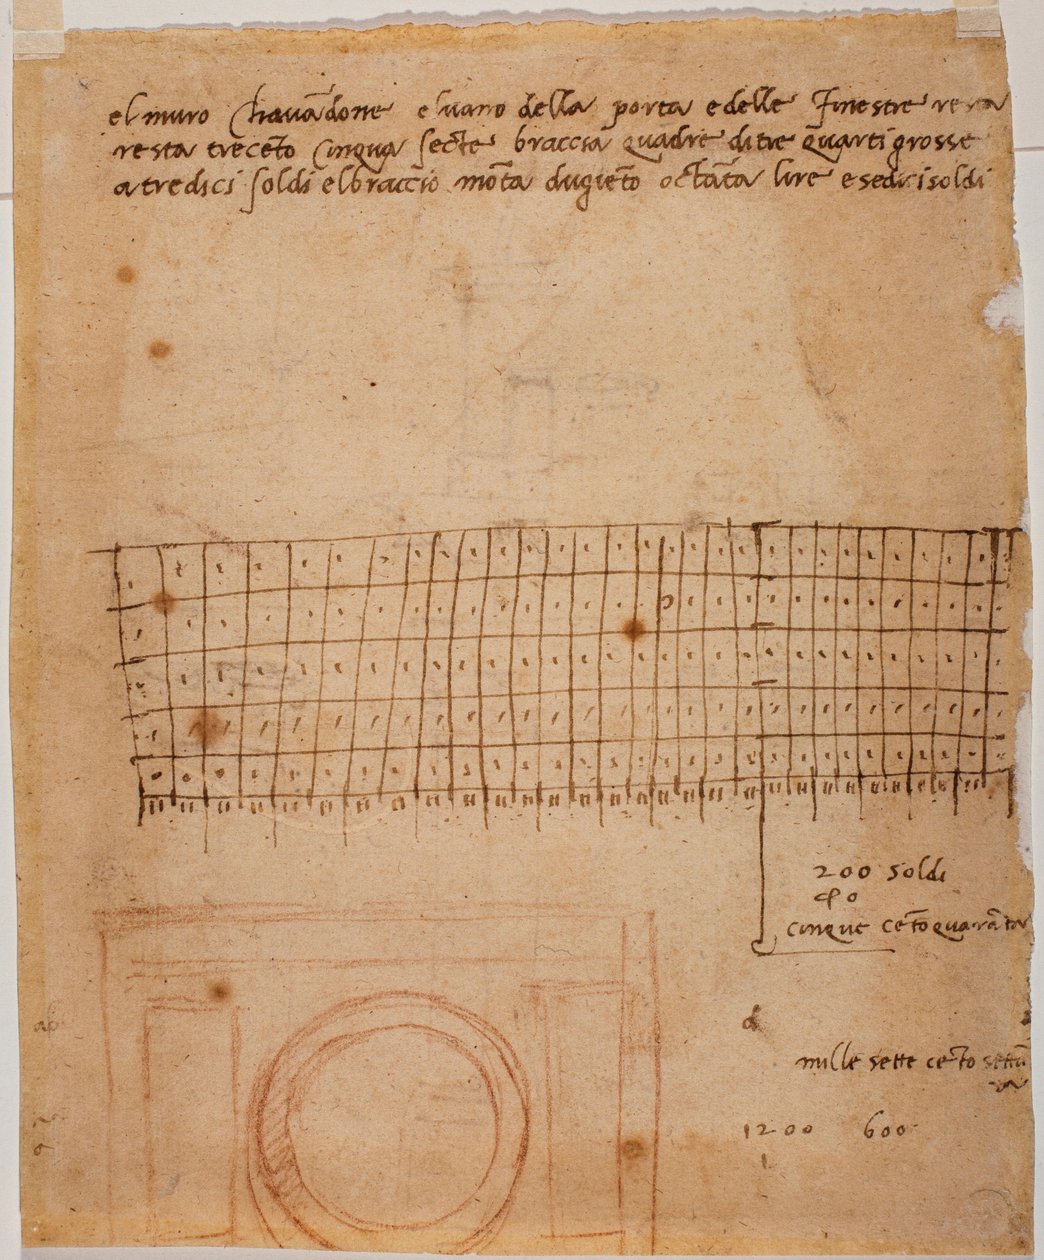 el muro chavãdone e luano della porta e delle finestre resta
resta treceto cinqua secte braccia quadre di tre quarti grosse
a tredici soldi el braccio mõta dugiẽto octãta lire e sedici soldi
200 soldi
cinque cẽto quarãta
mille sette cẽto
1200 600
1